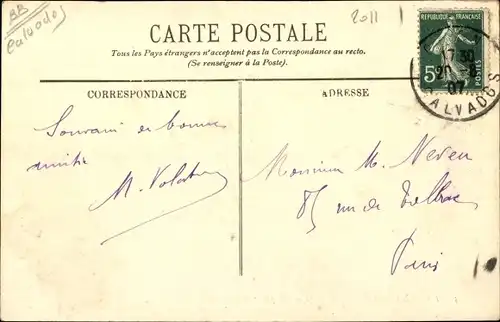 AR
Calvados
2011
CARTE POSTALE
Tous les Pays étrangers n'acceptent pas la Correspondance au recto.
(Se renseigner à la Poste).
REPUBLIQUE FRANÇAISE
5c POSTES
7 30
07
CALVADOS
CORRESPONDANCE
ADRESSE
Souvenir de bonne
amitié
Monsieur M. Neveu
85 rue de
Paris